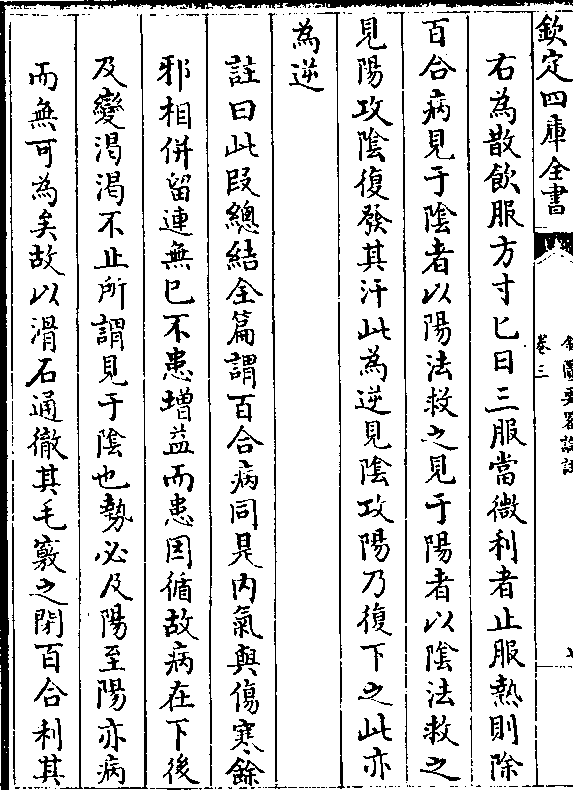 欽定四庫全書
金匱要畧論註
卷三
右為散飲服方寸匕日三服當微利者止服熱則除
百合病見于陰者以陽法救之見于陽者以陰法救之
見陽攻陰復發其汗此為逆見陰攻陽乃復下之此亦
為逆
註曰此段總結全篇謂百合病同是内氣與傷寒餘
邪相併留連無已不患增益而患因循故病在下後
及變渴渴不止所謂見于陰也勢必及陽至陽亦病
而無可為矣故以滑石通徹其毛竅之閉百合利其